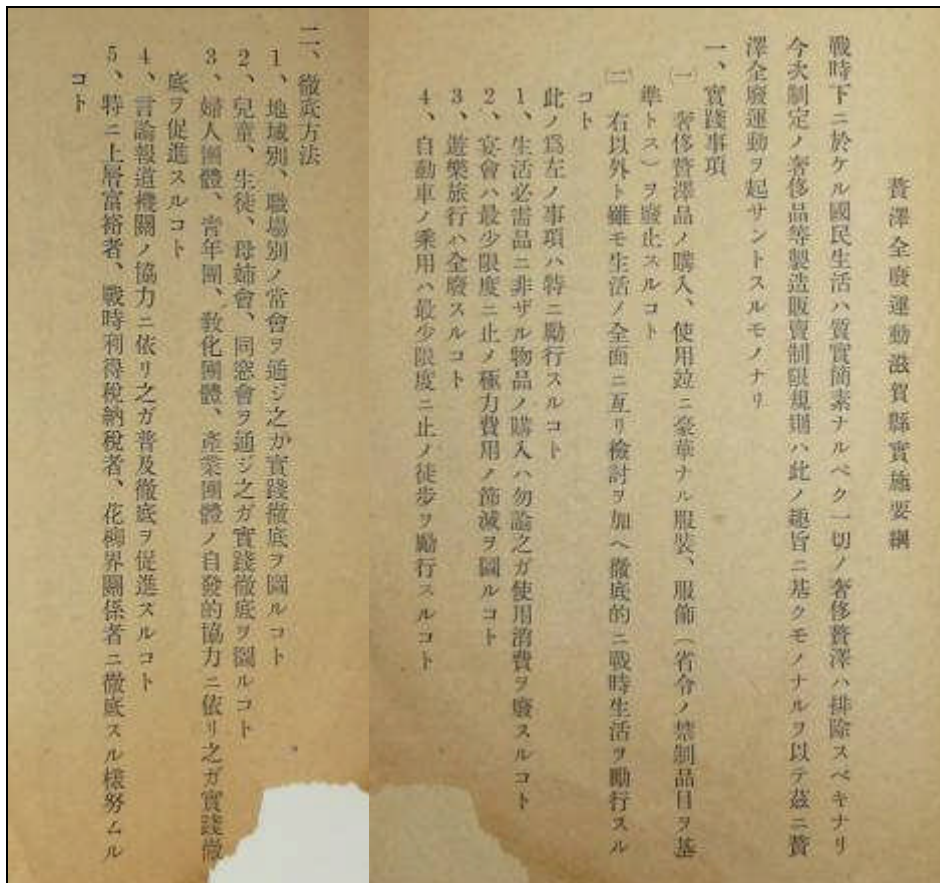 贅澤全廢運動滋賀縣實施要綱
戰時下ニ於ケル國民生活ハ質實簡素ナルベク一切ノ奢侈贅澤ハ排除スベキナリ
今次制定ノ奢侈品等製造販賣制限規則ハ此ノ趣旨ニ基クモノナルヲ以テ茲ニ贅
澤全廢運動ヲ起サントスルモノナリ
一、實踐事項
㈠ 奢侈贅澤品ノ購入、使用竝ニ豪華ナル服裝、服飾(省令ノ禁制品目ヲ基
準トス)ヲ廢止スルコト
㈡ 右以外ト雖モ生活ノ全面ニ亙リ檢討ヲ加ヘ徹底的ニ戰時生活ヲ勵行スル
コト
此ノ爲左ノ事項ハ特ニ勵行スルコト
1、生活必需品ニ非ザル物品ノ購入ハ勿論之ガ使用消費ヲ廢スルコト
2、宴會ハ最少限度ニ止メ極力費用ノ節減ヲ圖ルコト
3、遊樂旅行ハ全廢スルコト
4、自動車ノ乘用ハ最少限度ニ止メ徒步ヲ勵行スルコト
二、徹底方法
1、地域別、職場別ノ常會ヲ通ジ之ガ實踐徹底ヲ圖ルコト
2、兒童、生徒、母姉會、同窓會ヲ通ジ之ガ實踐徹底ヲ圖ルコト
3、婦人團體、靑年團、敎化團體、產業團體ノ自發的協力ニ依リ之ガ實踐徹
底ヲ促進スルコト
4、言論報道機關ノ協力ニ依リ之ガ普及徹底ヲ促進スルコト
5、特ニ上層富裕者、戰時利得稅納稅者、花柳界關係者ニ徹底スル樣努ムル
コト